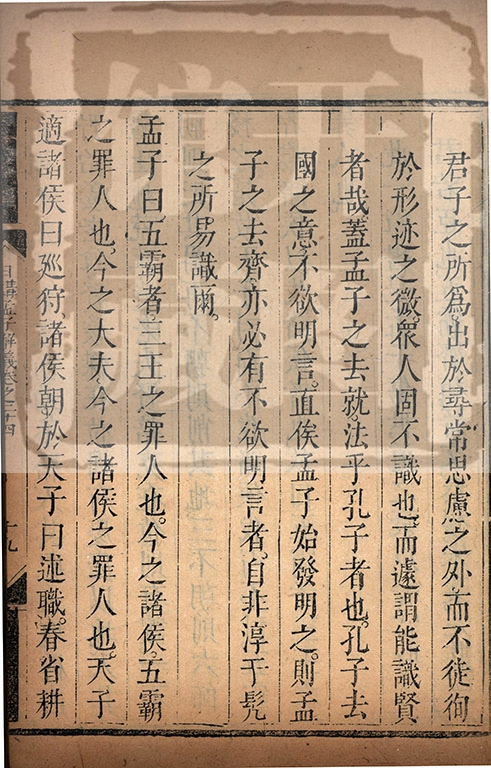 君子之所爲出於尋常思慮之外而不徒徇
於形迹之微衆人固不識也而遽謂能識賢
者哉蓋孟子之去就法乎孔子者也孔子去
國之意不欲明言直俟孟子始發明之則孟
子之去齊亦必有不欲明言者自非淳于髡
之所易識爾
孟子曰五霸者三王之罪人也今之諸侯五霸
之罪人也今之大夫今之諸侯之罪人也天子
適諸侯曰廵狩諸侯朝於天子曰述職春省耕